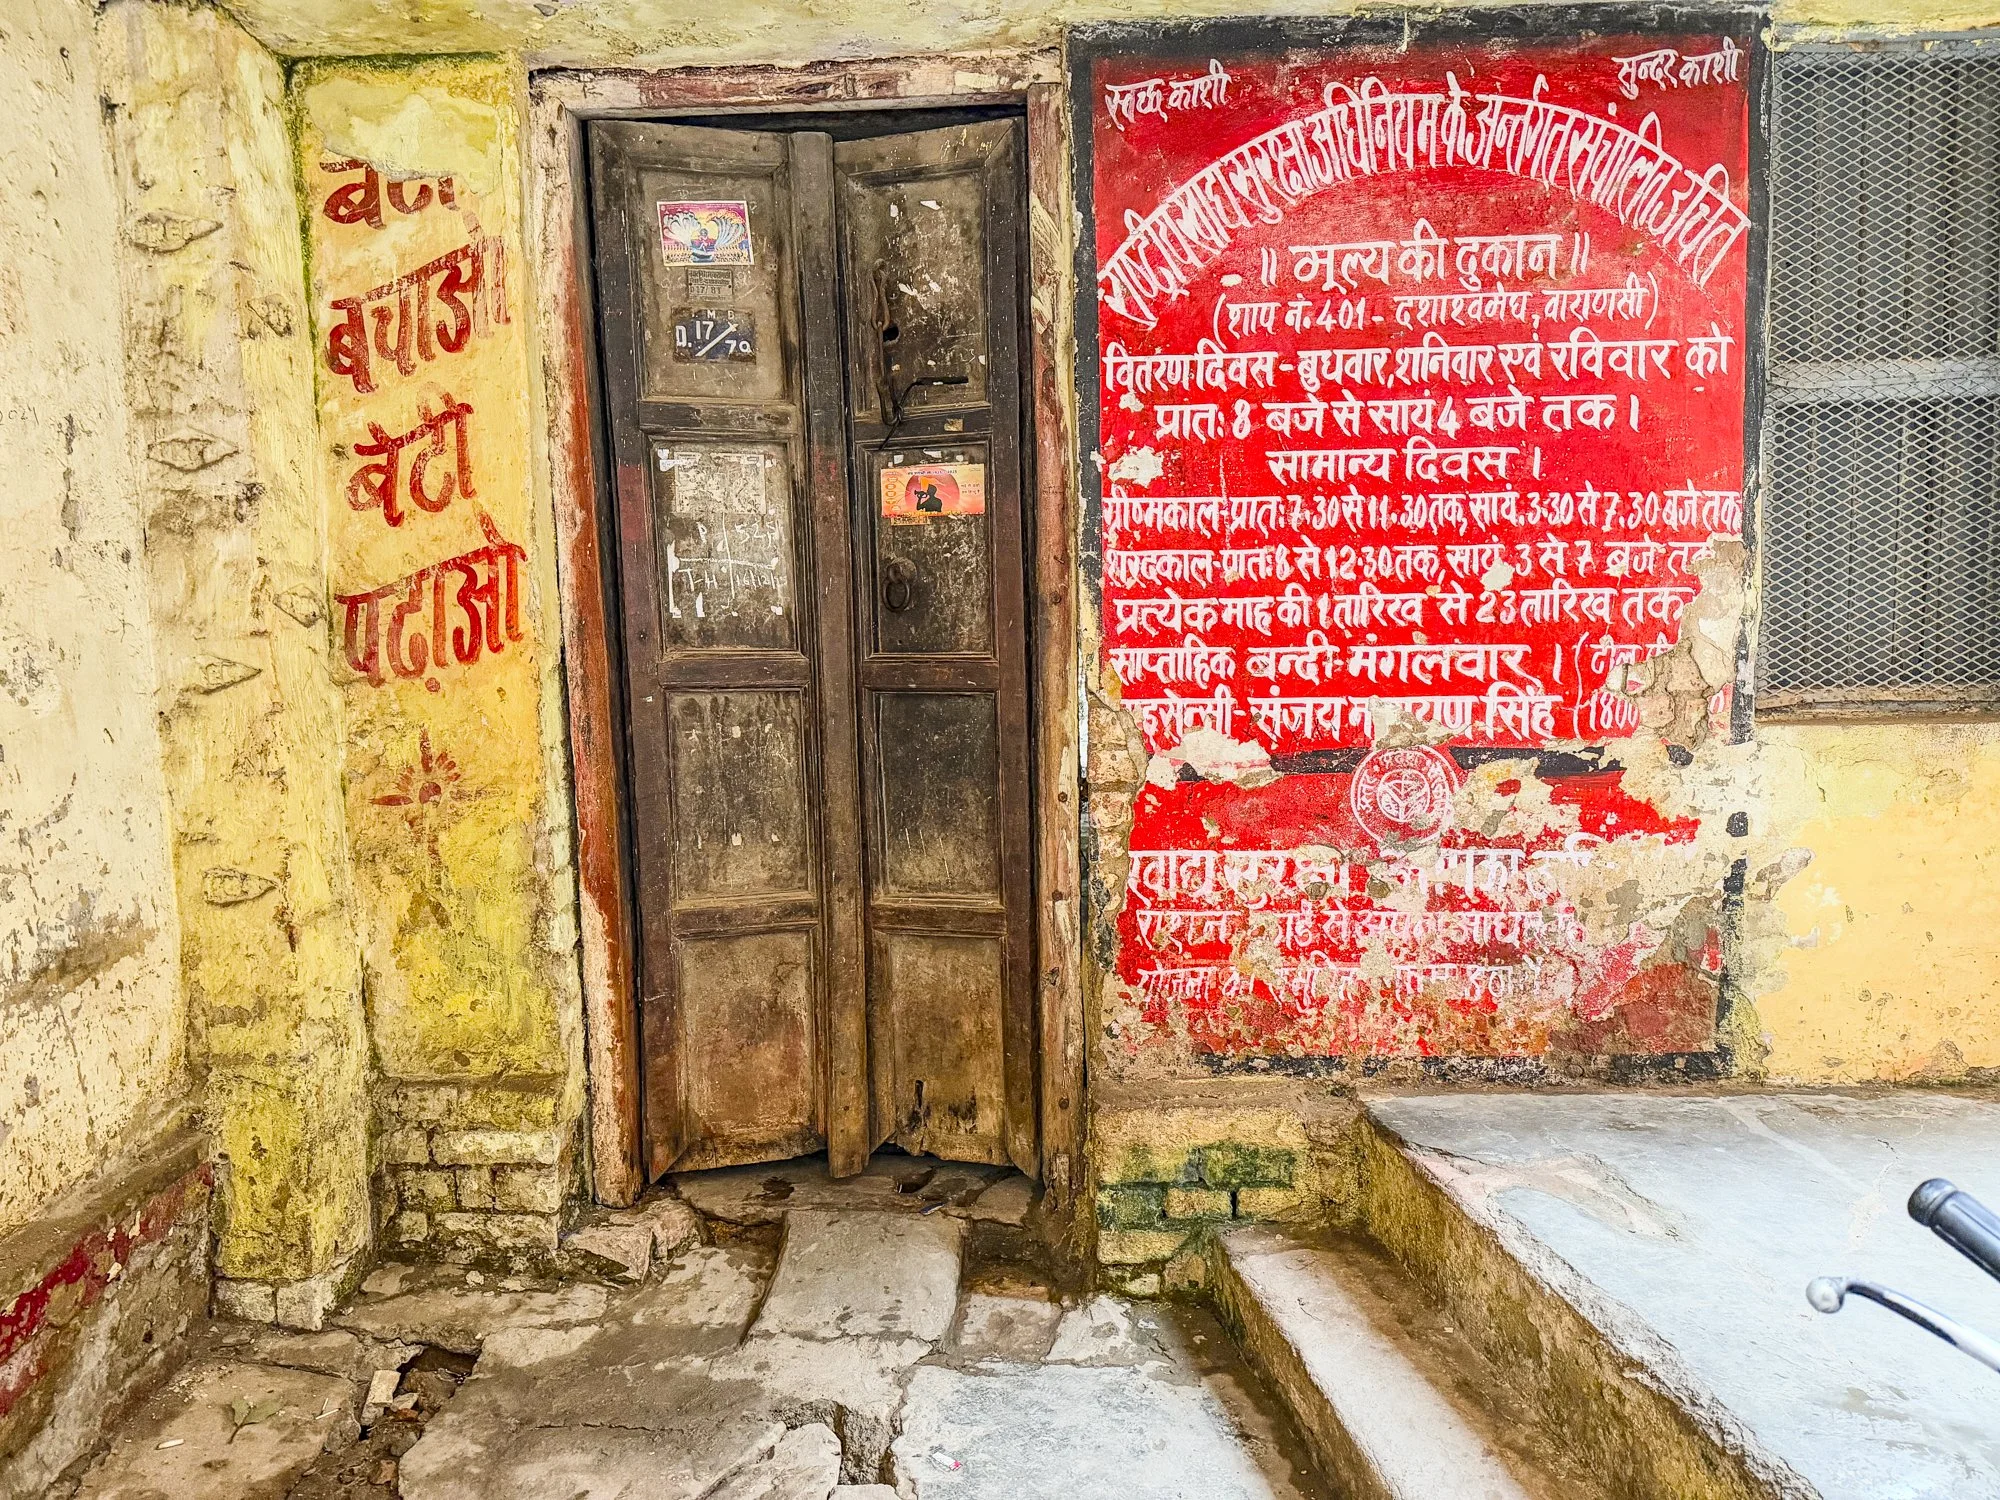 बेटी
बचाओ
बेटी
पढ़ाओ
D.17/79
स्वच्छ काशी
सुन्दर काशी
राष्ट्रीय खाद्य सुरक्षा अधिनियम के अर्न्तगत संचालित उचित
॥ मूल्य की दुकान ॥
(शाप नं. 401 - दशाश्वमेघ, वाराणसी)
वितरण दिवस - बुधवार, शनिवार एवं रविवार को
प्रातः 8 बजे से सायं 4 बजे तक।
सामान्य दिवस।
ग्रीष्मकाल-प्रातः 7.30 से 11.30 तक, सायं. 3.30 से 7.30 बजे तक
शरदकाल-प्रातः 8 से 12.30 तक, सायं. 3 से 7 बजे तक
प्रत्येक माह की 1 तारिख से 23 तारिख तक
साप्ताहिक बन्दी-मंगलवार।
लाइसेन्सी-संजय नारायण सिंह
खाद्य सुरक्षा
राशन कार्ड से अपना आधार